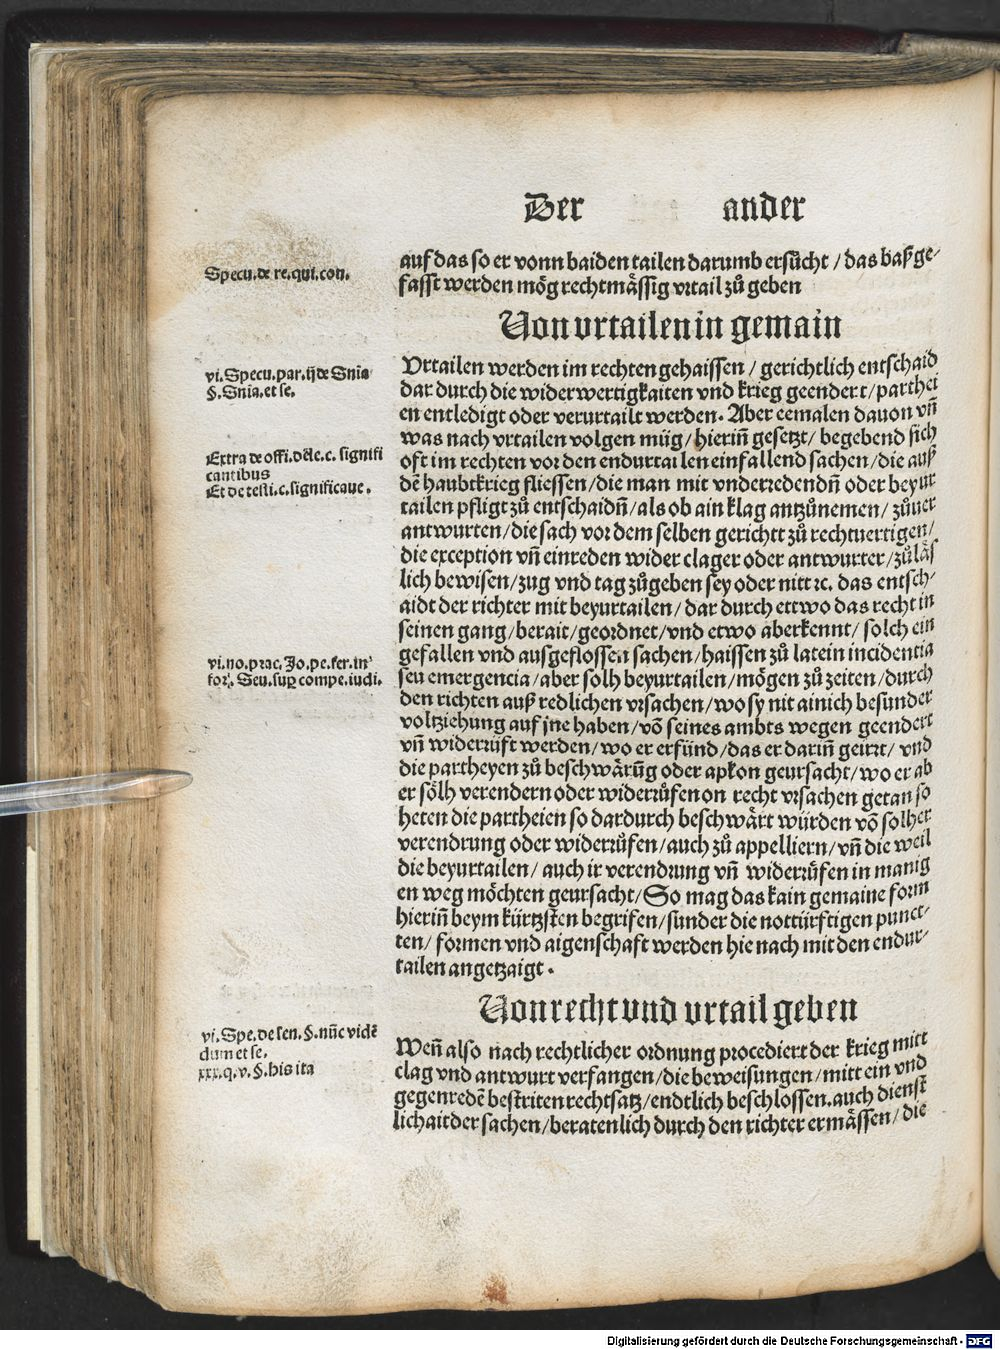 Der ander
Specu. de re. qui. con.
auf das so er vonn baiden tailen darumb ersůcht / das baß ge⸗
fasst werden mög rechtmässig vrtail zů geben
Von vrtailen in gemain
vi. Specu. par. ij de Snia
§. Snia. et se.
Vrtailen werden im rechten gehaissen / gerichtlich entschaid
dar durch die widerwertigkaiten vnd krieg geendert / parthei
en entledigt oder verurtailt werden. Aber eemalen dauon vn̄
was nach vrtailen volgen müg / hierin̄ gesetzt / begebend sich
Extra de offi. dele. c. signifi
cantibus
Et de testi. c. significaue.
oft im rechten vor den endurtailen einfallend sachen / die auß
dē haubtkrieg fliessen / die man mit vnderredendn̄ oder beyur
tailen pfligt zů entschaidn̄ / als ob ain klag antzůnemen / zůuer
antwurten / die sach vor dem selben gerichtt zů rechtuertigen /
die exception vn̄ einreden wider clager oder antwurter / zůläs
lich bewisen / zug vnd tag zůgeben sey oder nitt ꝛc. das entsch⸗
aidt der richter mit beyurtailen / dar durch ettwo das recht in
seinen gang / berait / geordnet / vnd etwo aberkennt / solch ein
gefallen vnd ausgeflossen sachen / haissen zů latein incidentia
vi. no. prac. Jo. pe. fer. in
for. Seu. sup compe. iudi.
seu emergencia / aber solh beyurtailen / mögen zů zeiten / durch
den richten auß redlichen vrsachen / wo sy nit ainich besunder
voltziehung auf jne haben / vō seines ambts wegen geendert
vn̄ widerrüft werden / wo er erfünd / das er darin̄ geirrt / vnd
die partheyen zů beschwärūg oder apkon geursacht / wo er ab
er sölh verendern oder widerrůfen on recht vrsachen getan so
heten die partheien so dardurch beschwärt würden vō solher
verendrung oder widerrůfen / auch zů appelliern / vn̄ die weil
die beyurtailen / auch ir verendrung vn̄ widerrůfen in manig
en weg möchten geursacht / So mag das kain gemaine form
hierin̄ beym kürtzsten begrifen / sunder die nottürftigen punct⸗
ten / formen vnd aigenschaft werden hie nach mit den endur⸗
tailen angetzaigt.
Von recht vnd vrtail geben
vi. Spe. de sen. §. nūc vidē
dum et se.
xxx. q. v. §. his ita
Wen̄ also nach rechtlicher ordnung procediert der krieg mitt
clag vnd antwurt verfangen / die beweisungen / mitt ein vnd
gegenredē bestriten rechtsatz / endtlich beschlossen. auch dienst
lichait der sachen / beratenlich durch den richter ermässen / die
Digitalisierung gefördert durch die Deutsche Forschungsgemeinschaft - DFG